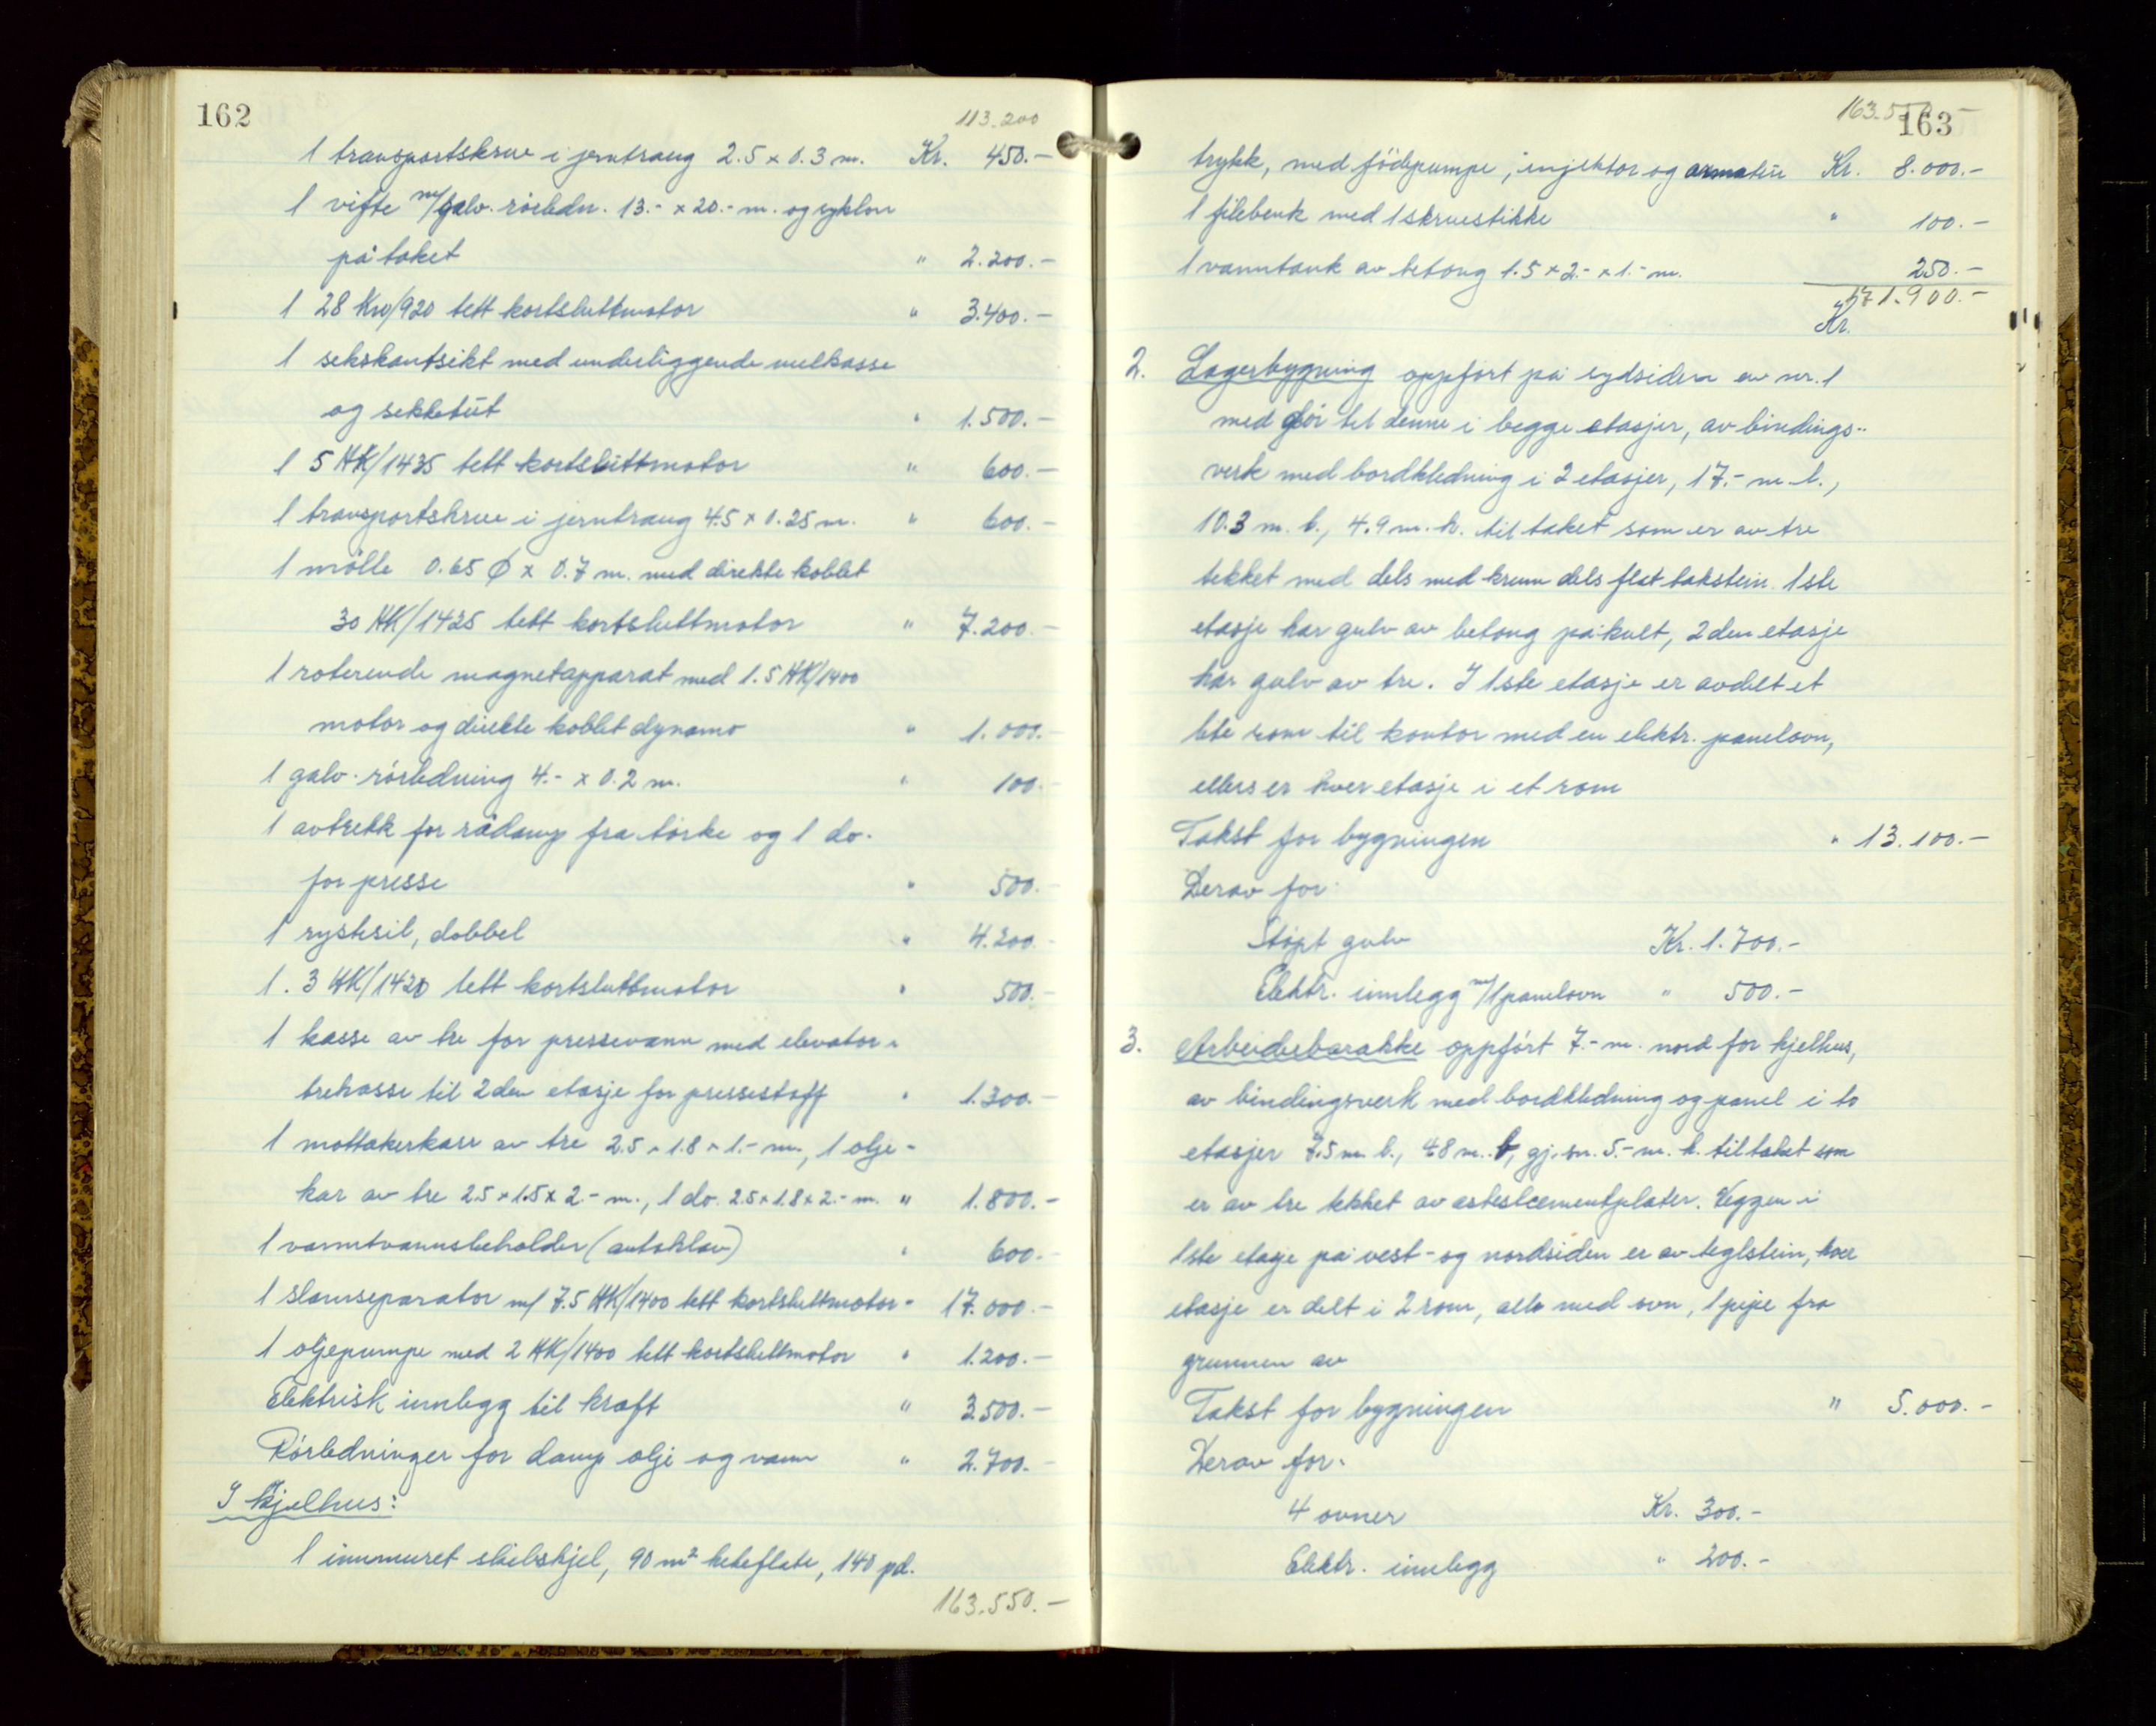 162
113.200
1 transportskrue i jerntraug 2.5 x 0.3 m. Kr. 450.-
1 vifte m/galv. rörledn. 13.- x 20.- m. og syklon
på taket " 2.200.-
1 28 Kw/920 tett kortsluttmotor " 3.400.-
1 sekskantsikt med underliggende melkasse
og sekketut " 1.500.-
1 5 HK/1435 tett kortsluttmotor " 600.-
1 transportskrue i jerntraug 4.5 x 0.25 m. " 600.-
1 mölle 0.65 ϕ x 0.7 m. med direkte koblet
30 HK/1425 tett kortsluttmotor " 7.200.-
1 roterende magnetapparat med 1.5 HK/1400
motor og direkte koblet dynamo " 1.000.-
1 galv. rörledning 4.- x 0.2 m. " 100.-
1 avtrekk for rådamp fra törke og 1 do.
for presse " 500.-
1 rystesil, dobbel " 4.200.-
1. 3 HK/1420 tett kortsluttmotor " 500.-
1 kasse av tre for pressevann med elevator i
trekasse til 2den etasje for pressestoff " 1.300.-
1 mottakerkar av tre 2.5 x 1.8 x 1.- m., 1 olje-
kar av tre 2.5 x 1.5 x 2.- m., 1 do. 2.5 x 1.8 x 2.- m. " 1.800.-
1 varmtvannsbeholder (autoklav) " 600.-
1 slamseparator m/ 7.5 HK/1400 tett kortsluttmotor " 17.000.-
1 oljepumpe med 2 HK/1400 tett kortsluttmotor " 1.200.-
Elektrisk innlegg til kraft " 3.500.-
Rörledninger for damp olje og vann " 2.700.-
I kjelhus:
1 innmuret skibskjel, 90 m² heteflate, 140 pd.
163.550.-
163
trykk, med födepumpe, injektor og armatur Kr. 8.000.-
1 filebenk med 1 skruestikke " 100.-
1 vanntank av betong 1.5 x 2.- x 1.- m. 250.-
Kr. 171.900.-
2. Lagerbygning oppfört på sydsiden av nr. 1
med dör til denne i begge etasjer, av bindings-
verk med bordkledning i 2 etasjer, 17.- m. l.,
10.3 m. b., 4.9 m. h. til taket som er av tre
tekket med dels med krum dels flat takstein. 1ste
etasje har gulv av betong på kult, 2den etasje
har gulv av tre. I 1ste etasje er avdelt et
lite rom til kontor med en elektr. panelovn,
ellers er hver etasje i et rom
Takst for bygningen " 13.100.-
Derav for:
Stöpt gulv Kr. 1.700.-
Elektr. innlegg m/1 panelovn " 500.-
3. Arbeiderbarakke oppfört 7.- m. nord for kjelhus,
av bindingsverk med bordkledning og panel i to
etasjer 7.5 m. l., 4.8 m. b., gj.sn. 5.- m. h. til taket som
er av tre tekket av asbestcementplater. Veggen i
1ste etasje på vest- og nordsiden er av teglstein, hver
etasje er delt i 2 rom, alle med ovn, 1 pipe fra
grunnen av
Takst for bygningen " 5.000.-
Derav for:
4 ovner Kr. 300.-
Elektr. innlegg " 200.-